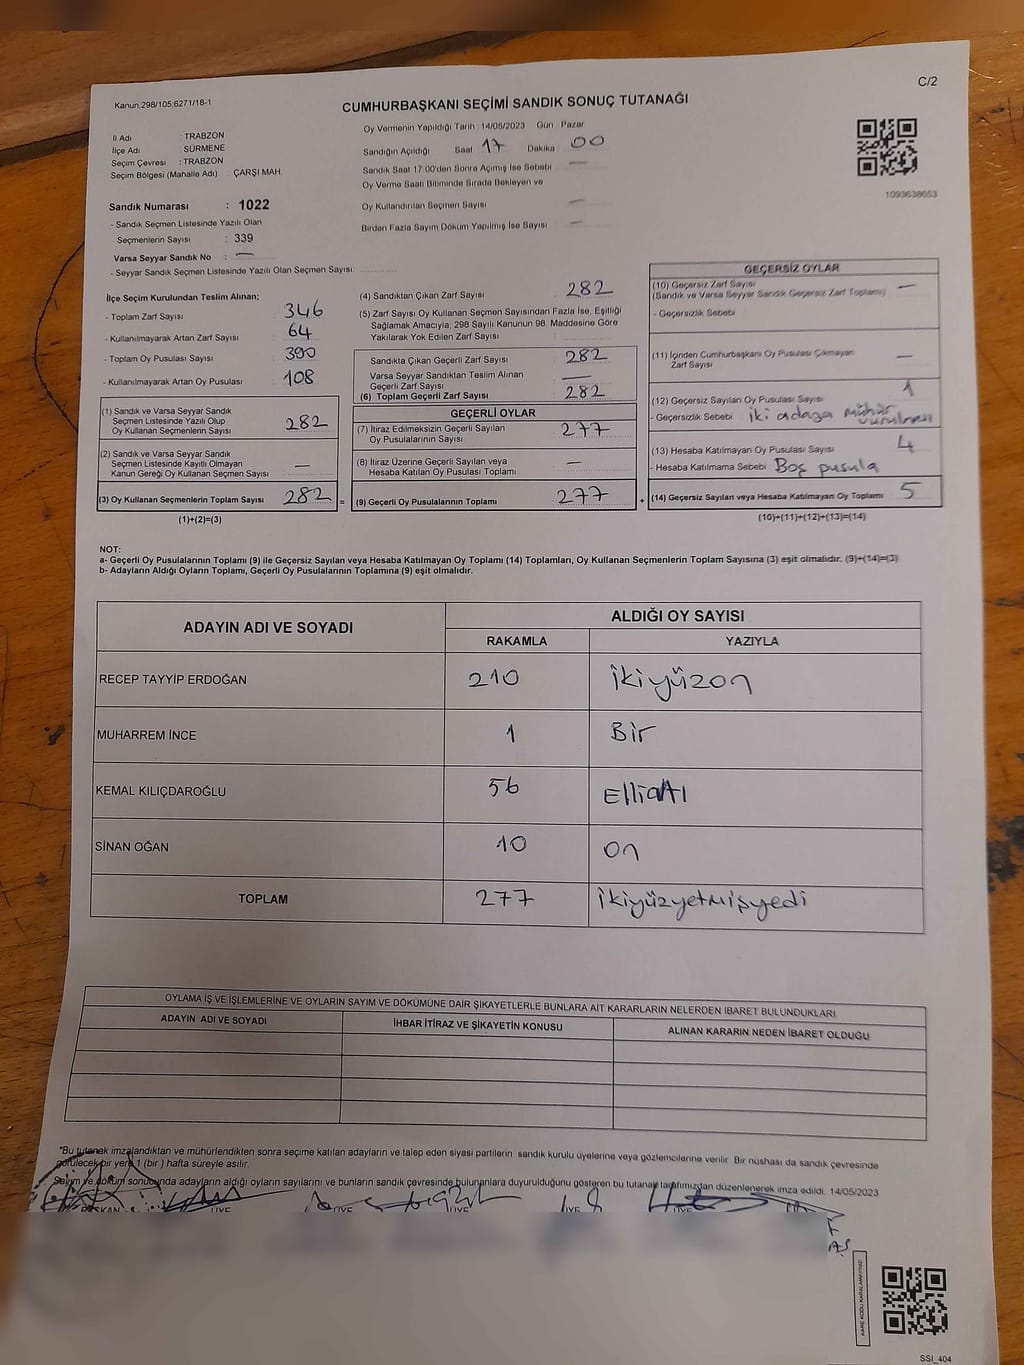 C/2
Kanun:298/105,6271/18-1
CUMHURBAŞKANI SEÇİMİ SANDIK SONUÇ TUTANAĞI
İl Adı : TRABZON
İlçe Adı : SÜRMENE
Seçim Çevresi : TRABZON
Seçim Bölgesi (Mahalle Adı) ÇARŞI MAH.
Oy Vermenin Yapıldığı Tarih :14/05/2023 Gün : Pazar
Sandığın Açıldığı Saat 17 Dakika 00
Sandık Saat 17:00'den Sonra Açımış İse Sebebi —
Oy Verme Saati Bitiminde Sırada Bekleyen ve
Oy Kullandırılan Seçmen Sayısı —
Birden Fazla Sayım Döküm Yapılmış İse Sayısı —
1093638653
Sandık Numarası : 1022
- Sandık Seçmen Listesinde Yazılı Olan
Seçmenlerin Sayısı : 339
Varsa Seyyar Sandık No : —
- Seyyar Sandık Seçmen Listesinde Yazılı Olan Seçmen Sayısı:
İlçe Seçim Kurulundan Teslim Alınan;
- Toplam Zarf Sayısı 346
- Kullanılmayarak Artan Zarf Sayısı 64
- Toplam Oy Pusulası Sayısı 390
- Kullanılmayarak Artan Oy Pusulası 108
(1) Sandık ve Varsa Seyyar Sandık
Seçmen Listesinde Yazılı Olup
Oy Kullanan Seçmenlerin Sayısı 282
(2) Sandık ve Varsa Seyyar Sandık
Seçmen Listesinde Kayıtlı Olmayan
Kanun Gereği Oy Kullanan Seçmen Sayısı —
(3) Oy Kullanan Seçmenlerin Toplam Sayısı 282 =
(1)+(2)=(3)
(4) Sandıktan Çıkan Zarf Sayısı : 282
(5) Zarf Sayısı Oy Kullanan Seçmen Sayısından Fazla İse, Eşitliği
Sağlamak Amacıyla; 298 Sayılı Kanunun 98. Maddesine Göre
Yakılarak Yok Edilen Zarf Sayısı :
Sandıkta Çıkan Geçerli Zarf Sayısı : 282
Varsa Seyyar Sandıktan Teslim Alınan
Geçerli Zarf Sayısı —
(6) Toplam Geçerli Zarf Sayısı : 282
GEÇERLİ OYLAR
(7) İtiraz Edilmeksizin Geçerli Sayılan
Oy Pusulalarının Sayısı : 277
(8) İtiraz Üzerine Geçerli Sayılan veya
Hesaba Katılan Oy Pusulası Toplamı —
(9) Geçerli Oy Pusulalarının Toplamı : 277 +
GEÇERSİZ OYLAR
(10) Geçersiz Zarf Sayısı —
(Sandık ve Varsa Seyyar Sandık Geçersiz Zarf Toplamı)
- Geçersizlik Sebebi
(11) İçinden Cumhurbaşkanı Oy Pusulası Çıkmayan
Zarf Sayısı —
(12) Geçersiz Sayılan Oy Pusulası Sayısı 1
- Geçersizlik Sebebi iki adaya mühür vurulması
(13) Hesaba Katılmayan Oy Pusulası Sayısı 4
- Hesaba Katılmama Sebebi Boş pusula
(14) Geçersiz Sayılan veya Hesaba Katılmayan Oy Toplamı 5
(10)+(11)+(12)+(13)=(14)
NOT:
a- Geçerli Oy Pusulalarının Toplamı (9) ile Geçersiz Sayılan veya Hesaba Katılmayan Oy Toplamı (14) Toplamları, Oy Kullanan Seçmenlerin Toplam Sayısına (3) eşit olmalıdır. (9)+(14)=(3)
b- Adayların Aldığı Oyların Toplamı, Geçerli Oy Pusulalarının Toplamına (9) eşit olmalıdır.
ADAYIN ADI VE SOYADI ALDIĞI OY SAYISI
RAKAMLA YAZIYLA
RECEP TAYYİP ERDOĞAN 210 ikiyüzon
MUHARREM İNCE 1 Bir
KEMAL KILIÇDAROĞLU 56 ElliAltı
SİNAN OĞAN 10 On
TOPLAM 277 ikiyüzyetmişyedi
OYLAMA İŞ VE İŞLEMLERİNE VE OYLARIN SAYIM VE DÖKÜMÜNE DAİR ŞİKAYETLERLE BUNLARA AİT KARARLARIN NELERDEN İBARET BULUNDUKLARI
ADAYIN ADI VE SOYADI İHBAR İTİRAZ VE ŞİKAYETİN KONUSU ALINAN KARARIN NEDEN İBARET OLDUĞU
*Bu tutanak imzalandıktan ve mühürlendikten sonra seçime katılan adayların ve talep eden siyasi partilerin sandık kurulu üyelerine veya gözlemcilerine verilir. Bir nüshası da sandık çevresinde
görülecek bir yere 1 (bir ) hafta süreyle asılır.
Sayım ve döküm sonucunda adayların aldığı oyların sayılarını ve bunların sandık çevresinde bulunanlara duyurulduğunu gösteren bu tutanak tarafımızdan düzenlenerek imza edildi. 14/05/2023
BAŞKAN ÜYE ÜYE ÜYE ÜYE
KARE KODU KARALAMAYINIZ!
SSİ_404